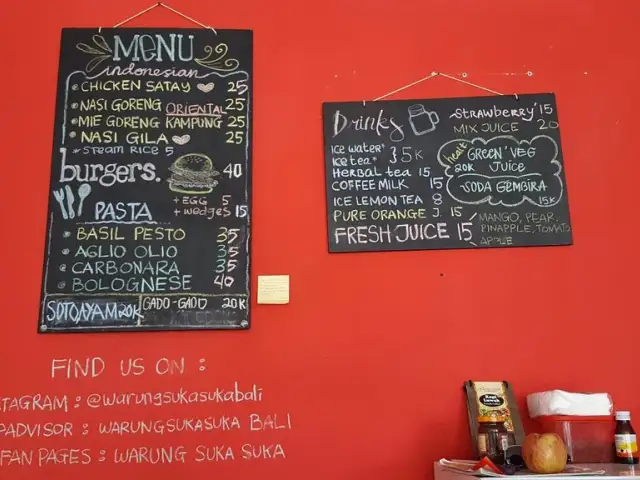 MENU
indonesian
CHICKEN SATAY 25
NASI GORENG ORIENTAL 25
MIE GORENG KAMPUNG 25
NASI GILA 25
*STEAM RICE 5
burgers. 40
+ EGG 5
+ wedges 15
PASTA
BASIL PESTO 35
AGLIO OLIO 35
CARBONARA 35
BOLOGNESE 40
SOTO AYAM 20K
GADO-GADO 20K
Drinks
ICE WATER
ICE TEA 5K
HERBAL TEA 15
COFFEE MILK 15
ICE LEMON TEA 8
PURE ORANGE J. 15
FRESH JUICE 15
MANGO, PEAR,
PINEAPPLE, TOMATO
APPLE
STRAWBERRY 15
MIX JUICE 20
GREEN VEG
20K JUICE
SODA GEMBIRA
15K
FIND US ON :
TAGRAM : @warungsukasukabali
PADVISOR : WARUNGSUKASUKA BALI
FAN PAGES : WARUNG SUKA SUKA